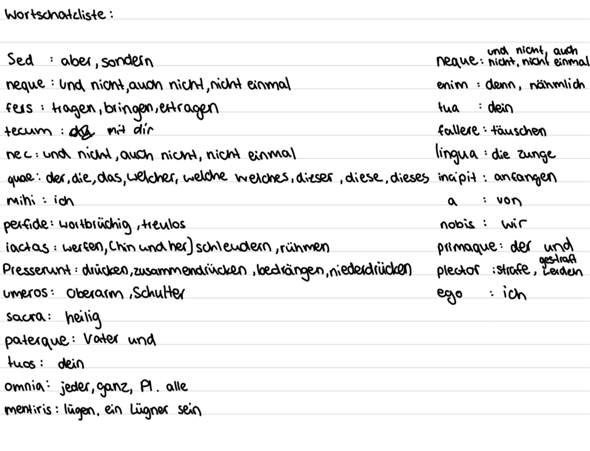 Wortschatzliste :
Sed : aber, sondern
neque : und nicht, auch nicht, nicht einmal
fers : tragen, bringen, ertragen
tecum : mit dir
nec : und nicht, auch nicht, nicht einmal
quae : der, die, das, welcher, welche welches, dieser, diese, dieses
mihi : ich
perfide : wortbrüchig, treulos
iactas : werfen, (hin und her) schleudern, rühmen
Presserunt : drücken, zusammendrücken, bedrängen, niederdrücken
umeros : Oberarm, Schulter
sacra : heilig
paterque : Vater und
tuos : dein
omnia : jeder, ganz, Pl. alle
mentiris : lügen, ein Lügner sein
neque : und nicht, auch nicht, nicht einmal
enim : denn, nähmlich
tua : dein
fallere : täuschen
lingua : die Zunge
incipit : anfangen
a : von
nobis : wir
primaque : der und
plector : strafe, gestraft leiden
ego : ich